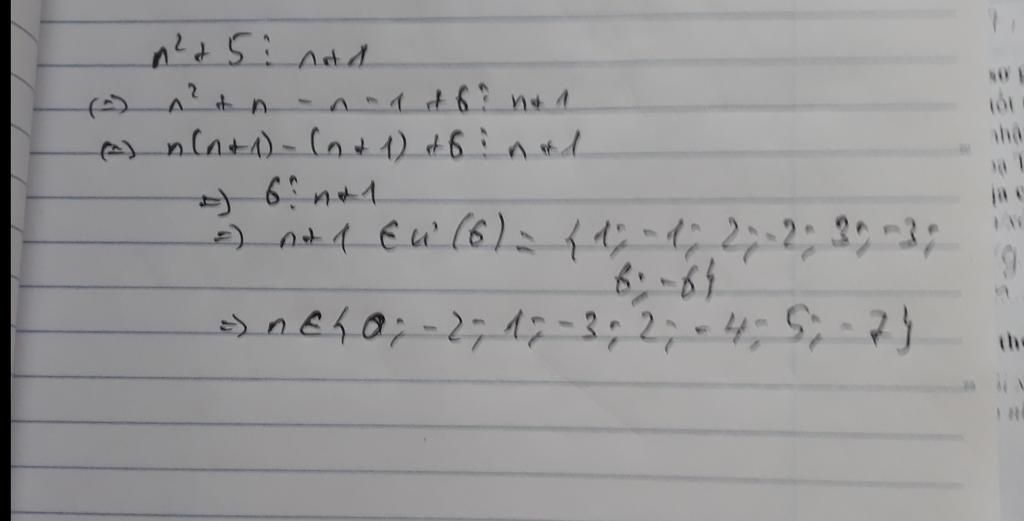 n² + 5 ⋮ n+1
(=) n² + n - n - 1 + 6 ⋮ n+1
(=) n(n+1) - (n+1) + 6 ⋮ n+1
=) 6 ⋮ n+1
=) n+1 ∈ Ư(6) = {1; -1; 2; -2; 3; -3;
6; -6}
=) n ∈ {0; -2; 1; -3; 2; -4; 5; -7}